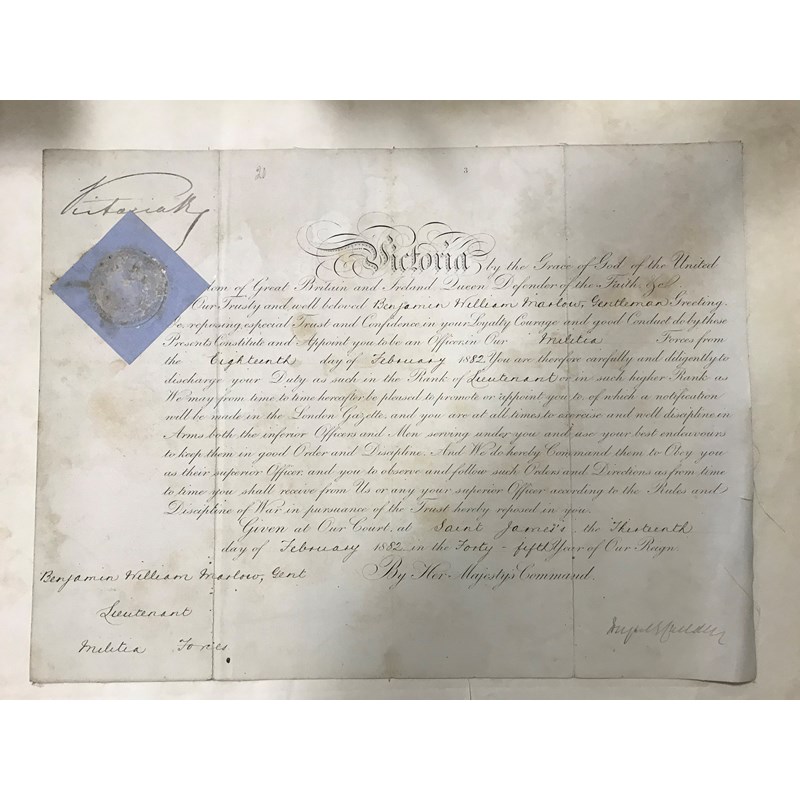 Victoria R
21 3
Victoria by the Grace of God of the United
dom of Great Britain and Ireland Queen Defender of the Faith &c
Our Trusty and well beloved Benjamin William Marlow, Gentleman Greeting
We, reposing especial Trust and Confidence in your Loyalty Courage and good Conduct do by these
Presents Constitute and Appoint you to be an Officer in Our Militia Forces from
the Eighteenth day of February 1882 You are therefore carefully and diligently to
discharge your Duty as such in the Rank of Lieutenant or in such higher Rank as
We may from time to time hereafter be pleased to promote or appoint you to, of which a notification
will be made in the London Gazette, and you are at all times to exercise and well discipline in
Arms both the inferior Officers and Men serving under you and use your best endeavours
to keep them in good Order and Discipline. And We do hereby Command them to Obey you
as their superior Officer, and you to observe and follow such Orders and Directions as from time
to time you shall receive from Us or any your superior Officer according to the Rules and
Discipline of War in pursuance of the Trust hereby reposed in you.
Given at Our Court, at Saint James's the Thirteenth
day of February 1882 in the Forty-fifth Year of Our Reign
By Her Majesty's Command.
Benjamin William Marlow, Gent
Lieutenant
Militia Forces